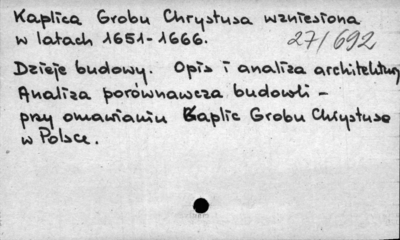 Kaplica Grobu Chrystusa wzniesiona
w latach 1651-1666.
27/692
Dzieje budowy. Opis i analiza architektury
Analiza porównawcza budowli -
przy omawianiu Kaplic Grobu Chrystusa
w Polsce.